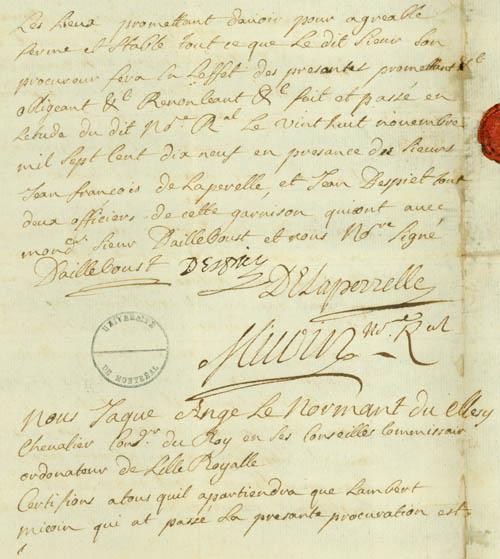 Les lieux promettant davoir pour agreable
ferme et stable tout ce que le dit sieur son
procureur fera en leffet des presantes promettant &c
obligeant &c Renonceant &c fait et passé en
Letude du dit Nore Ral le vinthuit novembre
mil sept cent dix neuf en presance des sieurs
Jean francois de Laperelle, et Jean Despiet tout
deux officiers de cette garnison quiont avec
mond. sieur Dailleboust et nous Nore signé
Dailleboust Despiet
DeLaperrelle
Micoin Nore Ral
UNIVERSITÉ
DE MONTREAL
Nous Jaque Ange Le Normant du Mesy
Chevalier Conser du Roy en ses Conseilles Commissair
ordonateur de Lille Royalle
Certifions atous quil appartiendra que Lambert
micoin qui at passé la presante procuration est